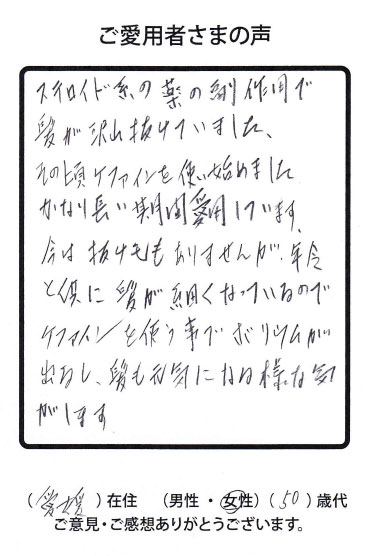 ご愛用者さまの声
ステロイド系の薬の副作用で
髪が沢山抜けていました、
その頃ケファインを使い始めました
かなり長い期間愛用しています。
今は抜け毛もありませんが、年令
と供に髪が細くなっているので
ケファインを使う事でボリウムが
出るし、髪も元気になる様な気
がします
(愛媛)在住 (男性・女性)(50)歳代
ご意見・ご感想ありがとうございます。